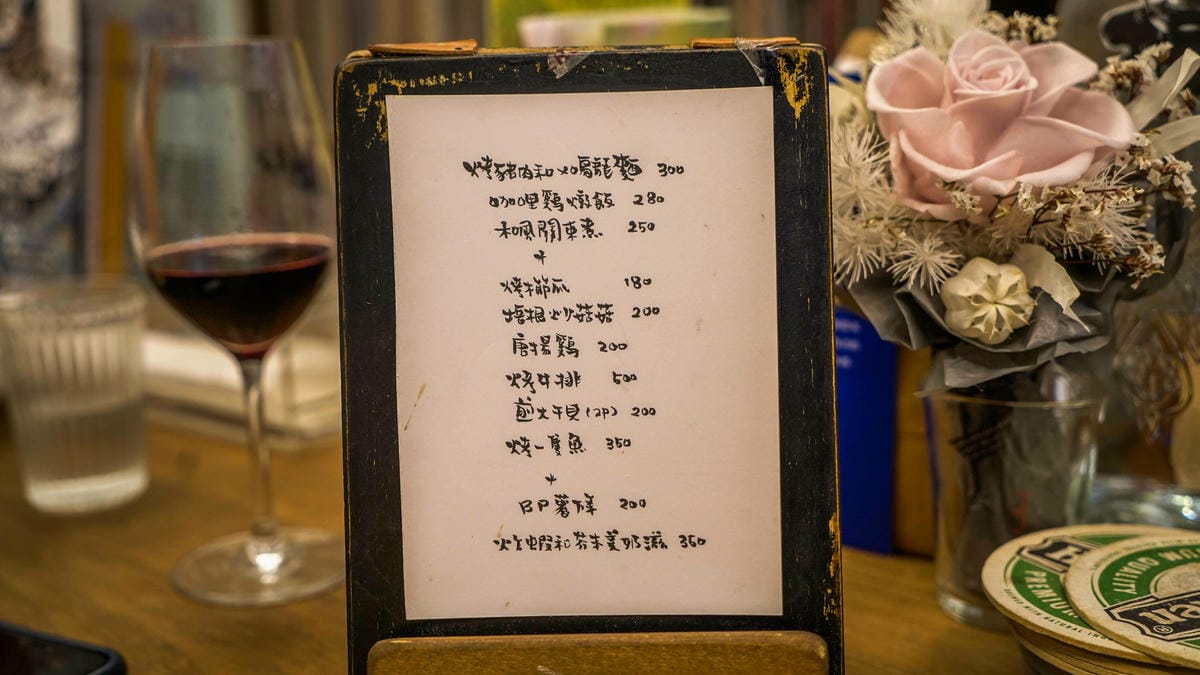 烤豬肉和火烏龍麵 300
咖哩雞燉飯 280
和風關東煮 250
*
烤櫛瓜 180
培根炒菇菇 200
唐揚雞 200
烤牛排 500
煎大干貝(2P) 200
烤一隻魚 350
*
BP薯條 200
炸蝦和芥末美奶滋 350
PREMIUM QUALITY